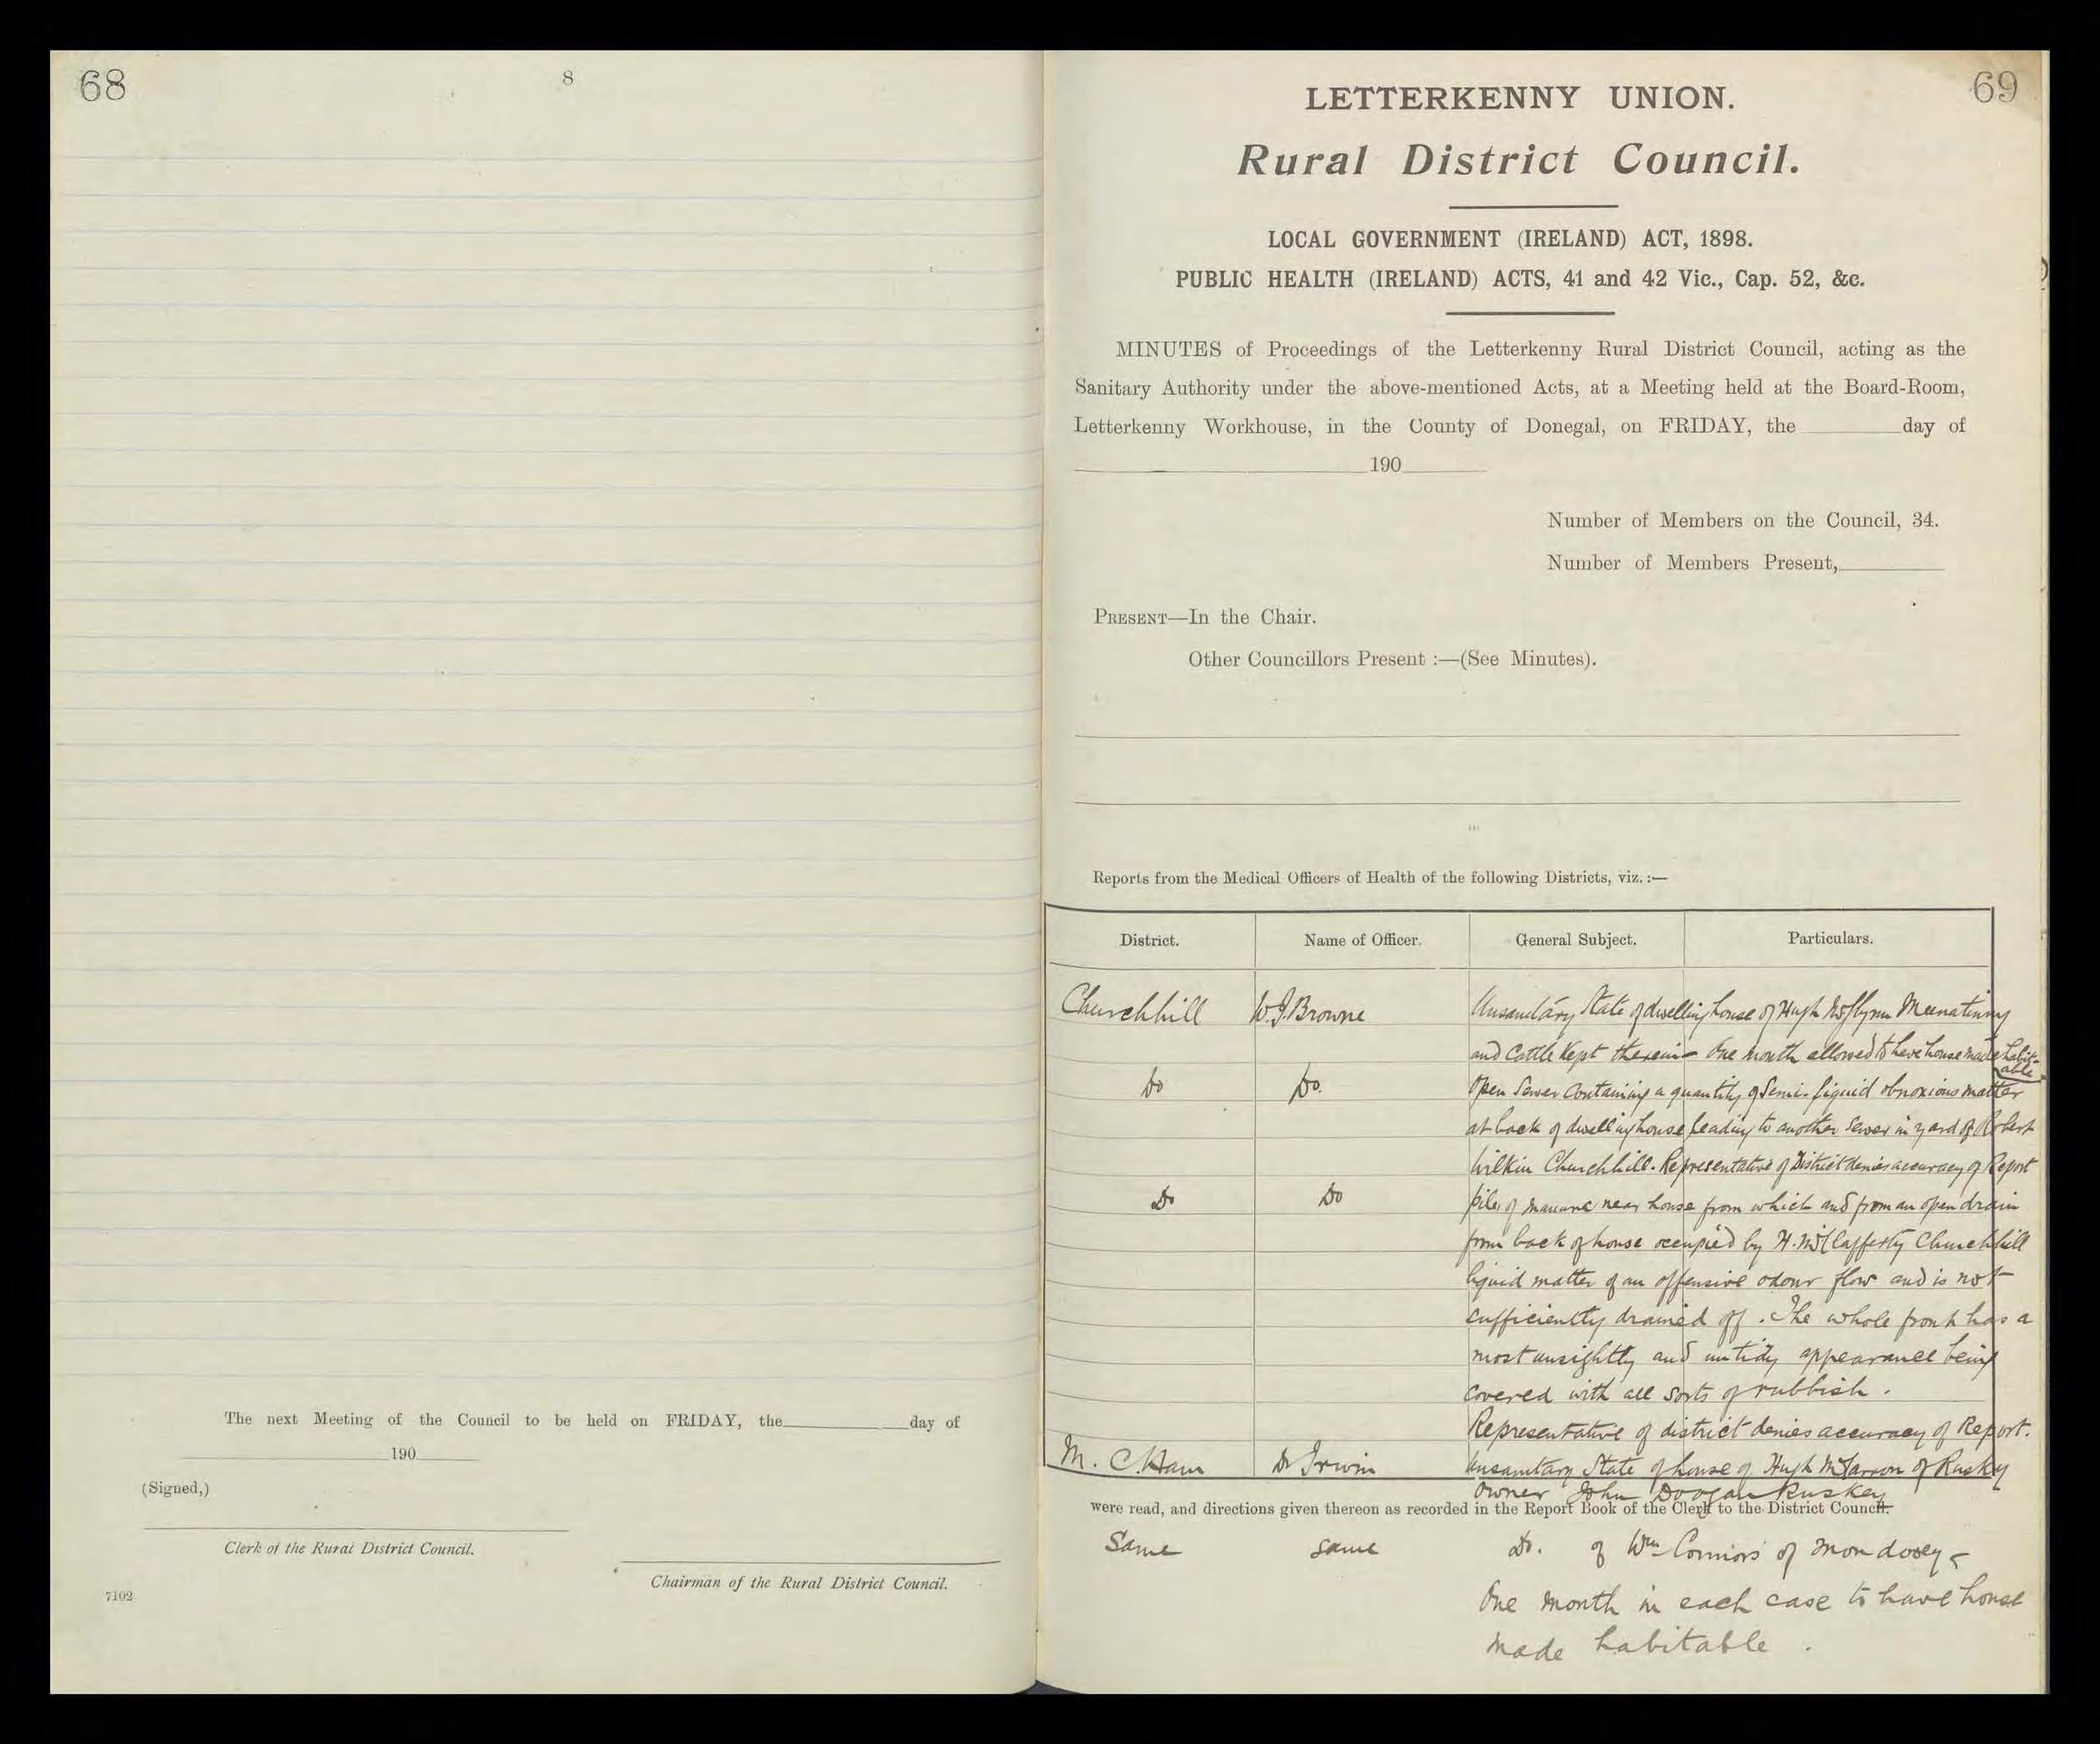 68
8
The next Meeting of the Council to be held on FRIDAY, the day of
190
(Signed,)
Clerk of the Rural District Council.
Chairman of the Rural District Council.
7102
69
LETTERKENNY UNION.
Rural District Council.
LOCAL GOVERNMENT (IRELAND) ACT, 1898.
PUBLIC HEALTH (IRELAND) ACTS, 41 and 42 Vic., Cap. 52, &c.
MINUTES of Proceedings of the Letterkenny Rural District Council, acting as the
Sanitary Authority under the above-mentioned Acts, at a Meeting held at the Board-Room,
Letterkenny Workhouse, in the County of Donegal, on FRIDAY, the day of
190
Number of Members on the Council, 34.
Number of Members Present,
PRESENT—In the Chair.
Other Councillors Present :—(See Minutes).
Reports from the Medical Officers of Health of the following Districts, viz. :—
District. Name of Officer. General Subject. Particulars.
Churchhill W.J. Browne Unsanitary State of dwelling house of Hugh McGlynn Meenatinny
and Cattle kept therein - One month allowed to have house made habit-
able
Do Do. Open Sewer containing a quantity of Semi-liquid obnoxious matter
at back of dwelling house leading to another Sewer in yard of Robert
Wilkin Churchhill. Representative of District denies accuracy of Report
Do Do piles of manure near house from which and from an open drain
from back of house occupied by H. McClafferty Churchhill
liquid matter of an offensive odour flow and is not
sufficiently drained off. The whole front has a
most unsightly and untidy appearance being
covered with all sorts of rubbish.
Representative of district denies accuracy of Report.
M. C. Ham Dr Irwin Unsanitary State of house of Hugh of Rusky
Owner John Doogan Ruskey
were read, and directions given thereon as recorded in the Report Book of the Clerk to the District Council.
Same same Do. of Wm Connors of
One month in each case to have house
made habitable.